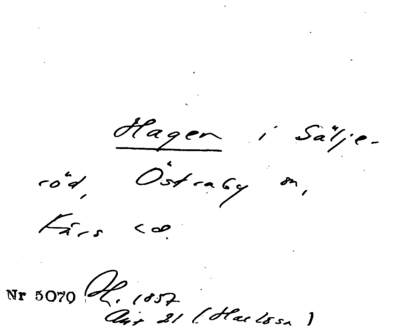 Hagen i Sälje-
röd, Östraby sn,
Färs hd.
Nr 5070 H. 1857
21 (Karlsson)